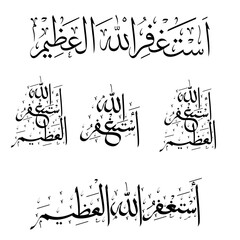 أستغفر الله العظيم
أستغفر الله العظيم
أستغفر الله
أستغفر الله العظيم
أستغفر الله العظيم